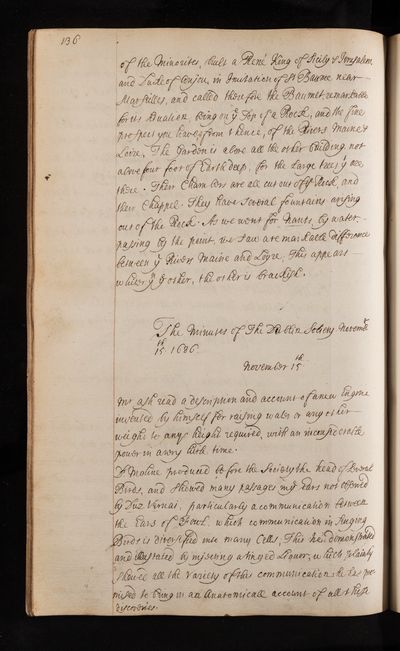 136
of the Minorites, built a Réné King of Sicily & Jerusalem
and Duke of Anjou, in Imitation of St Baume near
Marseilles, and called therefore the Baumet remarkable
for its situation, being on ye Top of a Rock, and the fine
prospect you have from thence, of the Rivers Maine &
Loire, The Garden is above all the other building, not
above four foot of Earth deep, for the large trees y see
there. Their Chambers are all cut out of ye Rock, and
their Chappel. They have several fountains arising
out of the Rock. As we went for Nants by water,
passing by the point, we saw a remarkable difference
between ye Rivers Maine and Loyre, This appears
whiter ye other, the other is brackish.
The Minutes of The Dublin Society Novemr
15th 1686
November 15th
Mr Ash read a description and account of a new Engine
invented by himself for raising water or any other
weight to any height required, with an inconsiderable
power in a very little time.
Dr Moline produced before the Society the head of several
Birds, and shewed many passages in ye Ears not observed
by Duz Vernai, particularly a communication between
the Ears of Fowl. which communication in singing
Birds is diversified into many Cells, This he demonstrated
and illustrated by injecting a tinged Liquor, which plainly
shewed all the variety of this communication he has pro-
mised to bring in an Anatomicall account of all these
discoveries.